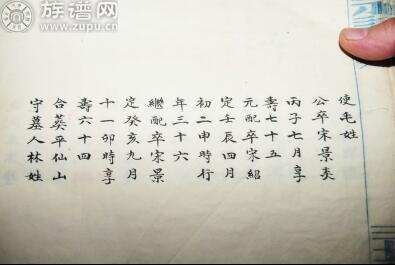 族谱网
www.zupu.cn
使毛姓
公卒宋景炎
丙子七月享
壽七十五
元配卒宋紹
定壬辰四月
初二申時行
年三十六
繼配卒宋景
定癸亥九月
十一卯時享
壽六十四
合葬平仙山
守墓人林姓